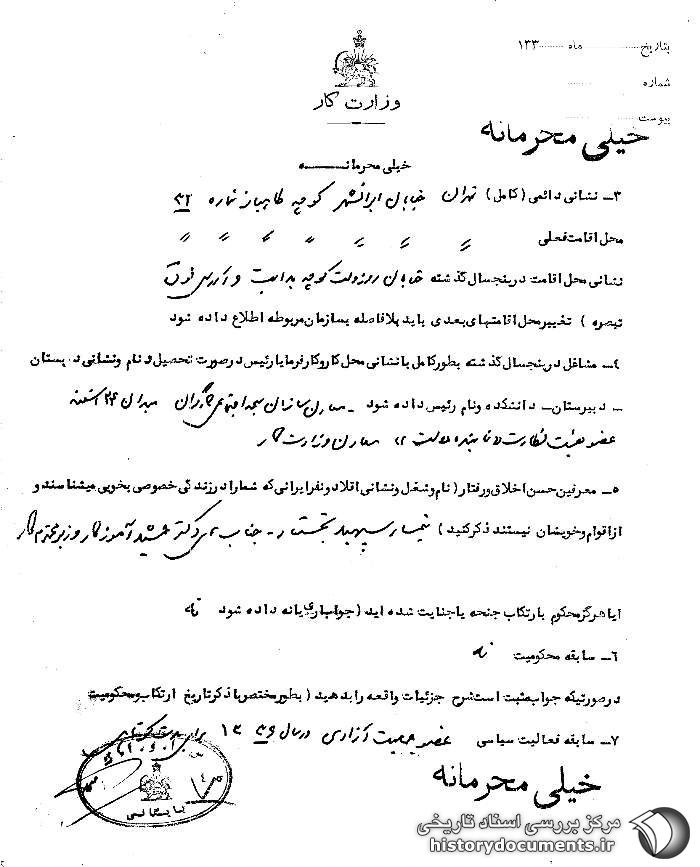 بتاریخ ........ ماه ........ ۱۳۳
شماره
پیوست
وزارت کار
خیلی محرمانه
خیلی محرمانه
۳- نشانی دائمی (کامل) تهران خیابان ایرانشهر کوچه نماره ۳۲
محل اقامت فعلی " " " " " " "
نشانی محل اقامت در پنجسال گذشته خیابان روزولت کوچه هدایت و آدرس فوق
تبصره ) تغییر محل اقامتهای بعدی باید بلافاصله بسازمان مربوطه اطلاع داده شود
۴- مشاغل در پنجسال گذشته بطور کامل با نشانی محل کار و کارفرما یا رئیس در صورت تحصیل و نام و نشانی دبستان
- دبیرستان - دانشکده و نام رئیس داده شود - معاون سازمان بیمه اجتماعی کارگران میدان ۲۴ اسفند
عضو هیئت نظارت (نماینده دولت) معاون وزارت کار
۵- معرفین حسن اخلاق و رفتار (نام و شغل و نشانی اقلا دو نفر ایرانی که شما را در زندگی خصوصی بخوبی میشناسند و
از اقوام و خویشان نیستند ذکر کنید) تیمسار سپهبد - جناب آقای دکتر جمشید آموزگار وزیر محترم کار
آیا هرگز محکوم بارتکاب جنحه یا جنایت شده اید (جواب آری یا نه داده شود نه
۶- سابقه محکومیت نه
در صورتیکه جواب مثبت است شرح جزئیات واقعه را بدهید (بطور مختصر با ذکر تاریخ ارتکاب و محکومیت
۷- سابقه فعالیت سیاسی عضو جمعیت آزادی در سال ۱۳۳۶ برای مدت کوتاهی
بایگانی
خیلی محرمانه
مرکز بررسی اسناد تاریخی
historydocuments.ir